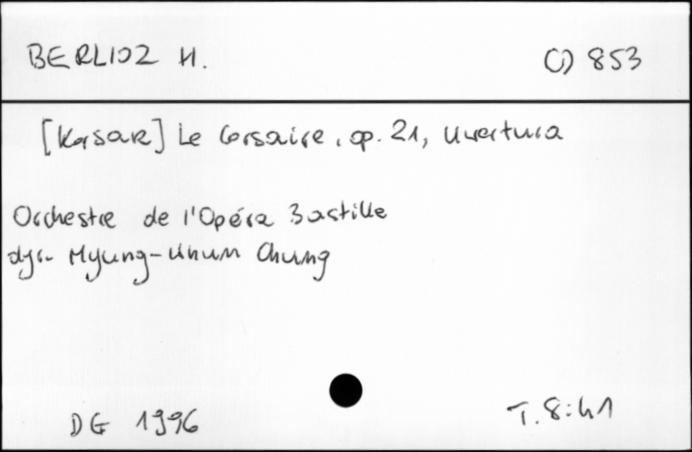 BERLIOZ H. CD 853
[Korsarz] Le Corsaire, op. 21, Uvertura
Orchestre de l'Opéra Bastille
dyr. Myung-Whun Chung
DG 1996 T. 8:41